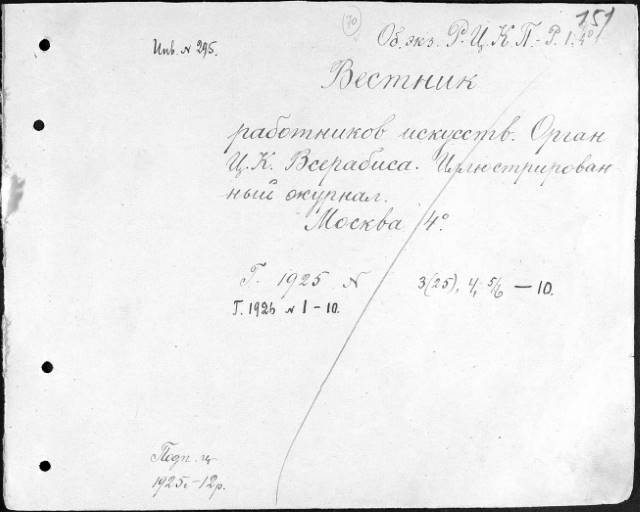 70
151
Инв. № 295.
Об. экз. Р.Ц.К.П.-Р.1.4°
Вестник
работников искусств. Орган
Ц.К. Всерабиса. Иллюстрирован-
ный журнал.
Москва 4°.
Г. 1925 N 3(25), 4, 5/6 — 10.
Г. 1926 № 1 - 10.
Подп. ц.
1925г.-12р.